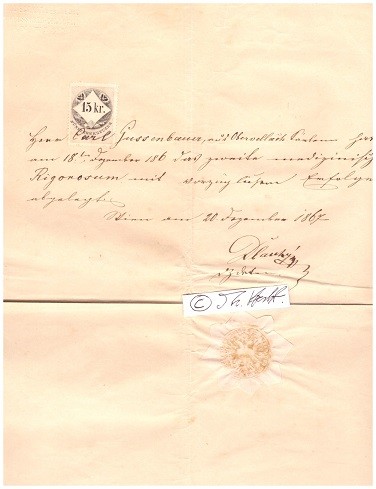 15 kr.
Herr Carl Gussenbauer, aus Obervellach Kärnten hat
am 18ten Dezember 186 das zweite medizinische
Rigorosum mit vorzüglichem Erfolge
abgelegt.
Wien am 20 Dezember 1867.
Dlauhy
© Th. Vo